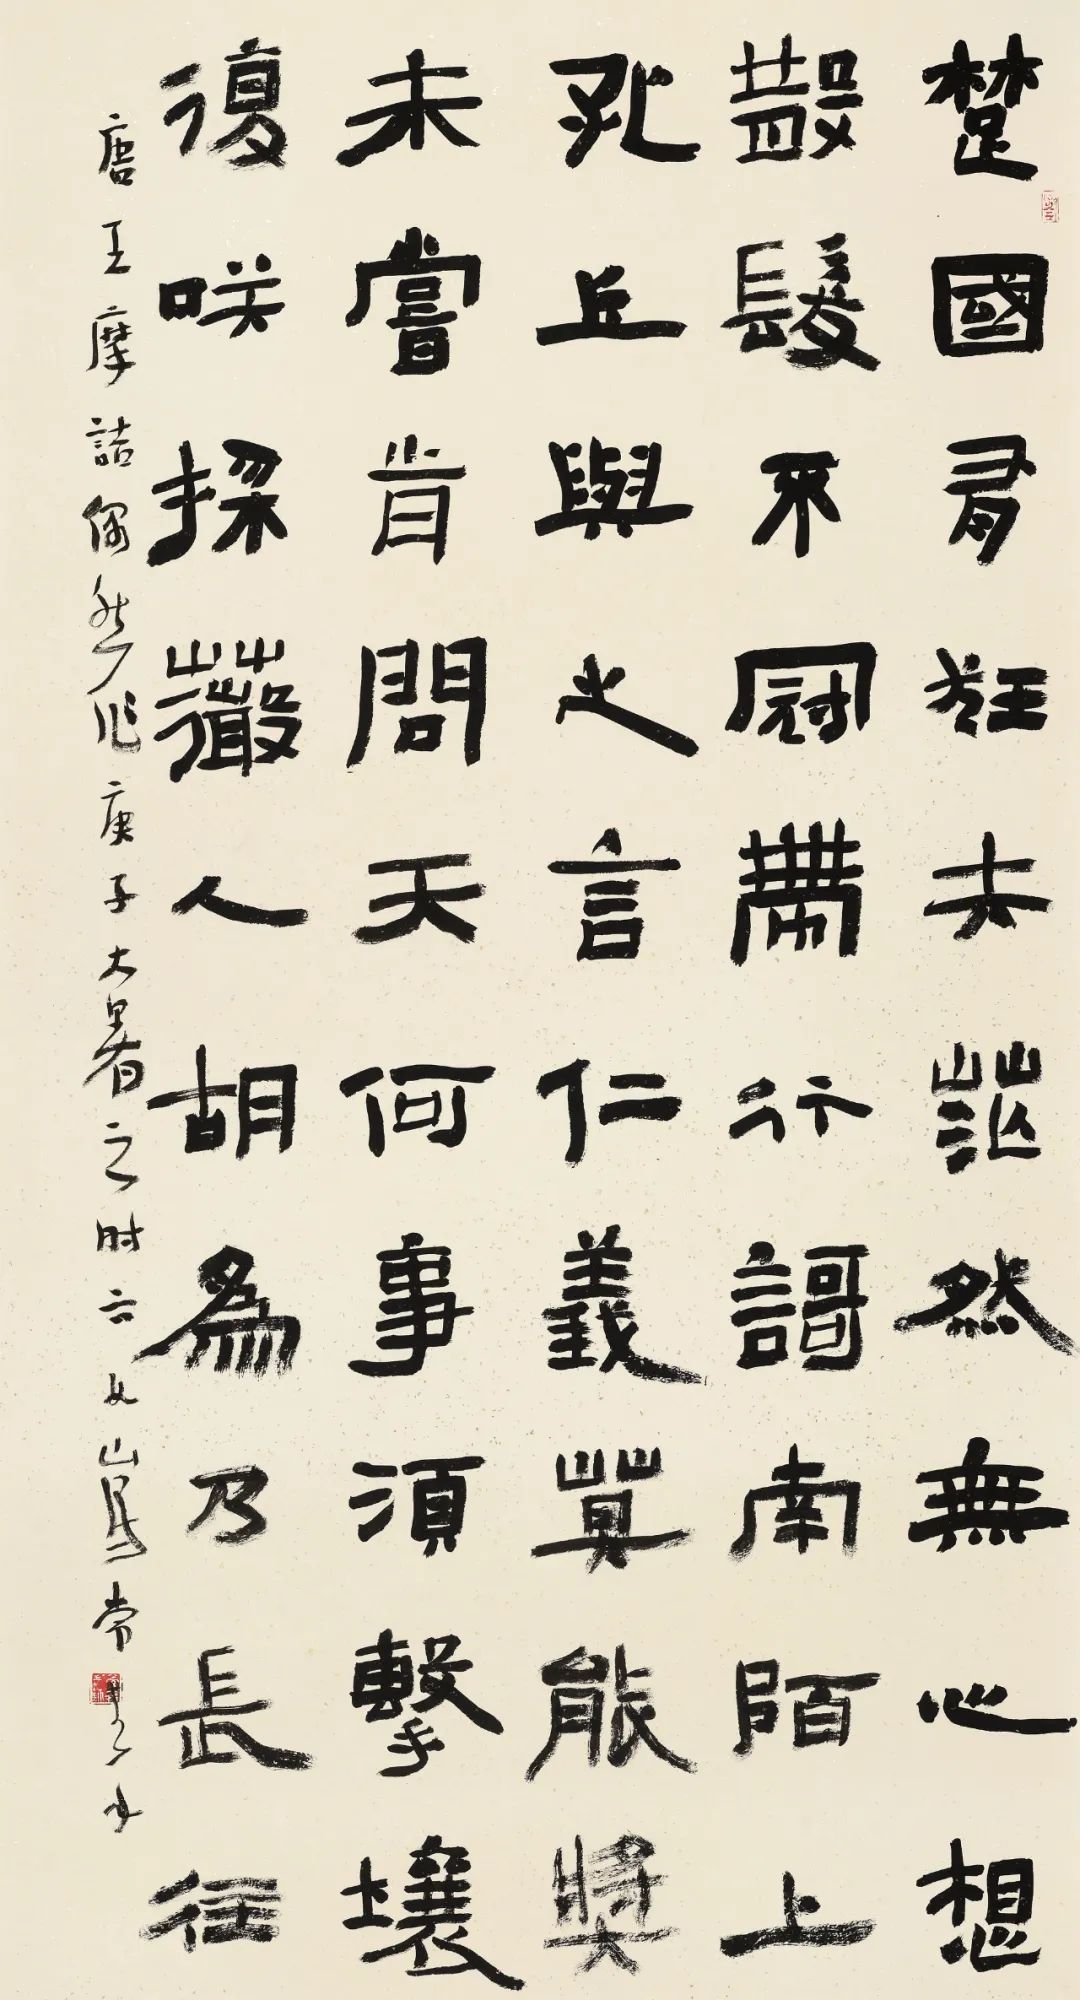 楚國有狂夫茫然無心想
散髮不冠帶行謌南陌上
孔丘與之言仁義莫能獎
未嘗肯問天何事須擊壤
復咲採薇人胡為乃長往
唐王摩詰偶然作庚子大暑之时